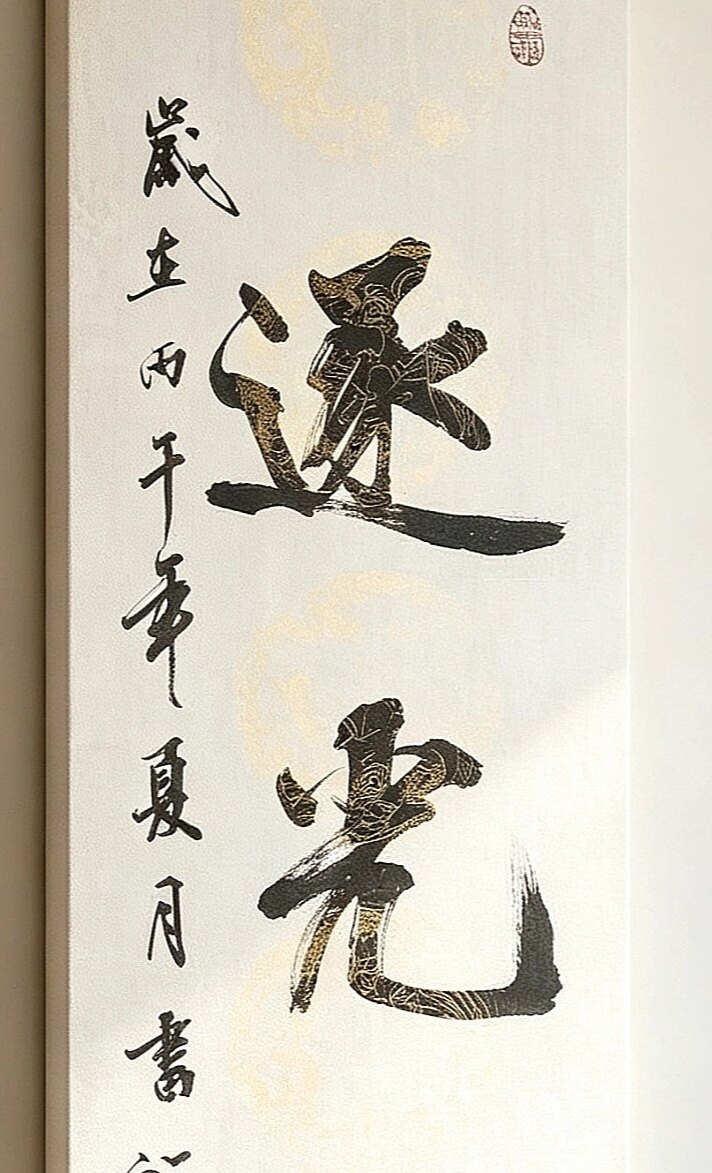 逐光
歲在丙午年夏月書